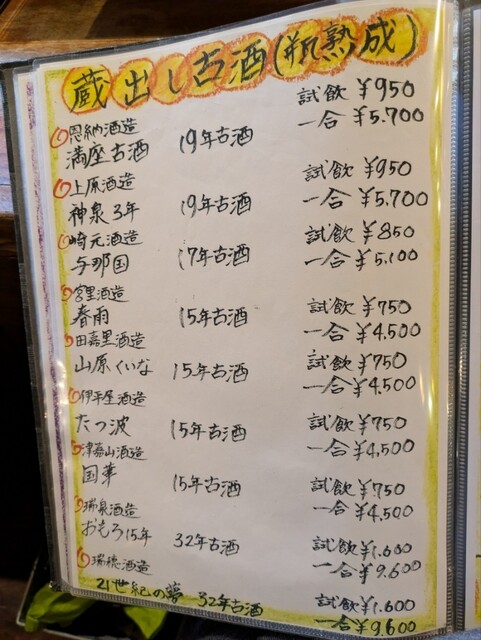 蔵出し古酒(瓶熟成)
恩納酒造 試飲 ¥950
満座古酒 19年古酒 一合 ¥5.700
上原酒造 試飲 ¥950
神泉3年 19年古酒 一合 ¥5,700
崎元酒造 試飲 ¥850
与那国 17年古酒 一合 ¥5,100
宮里酒造 試飲 ¥750
春雨 15年古酒 一合 ¥4,500
田嘉里酒造 試飲 ¥750
山原くいな 15年古酒 一合 ¥4,500
伊平屋酒造 試飲 ¥750
たつ波 15年古酒 一合 ¥4,500
津嘉山酒造 試飲 ¥750
国華 15年古酒 一合 ¥4,500
瑞泉酒造 試飲 ¥1.600
おもろ15年 32年古酒 一合 ¥9.600
瑞穂酒造 試飲 ¥1.600
21世紀の夢 32年古酒 一合 ¥9,600